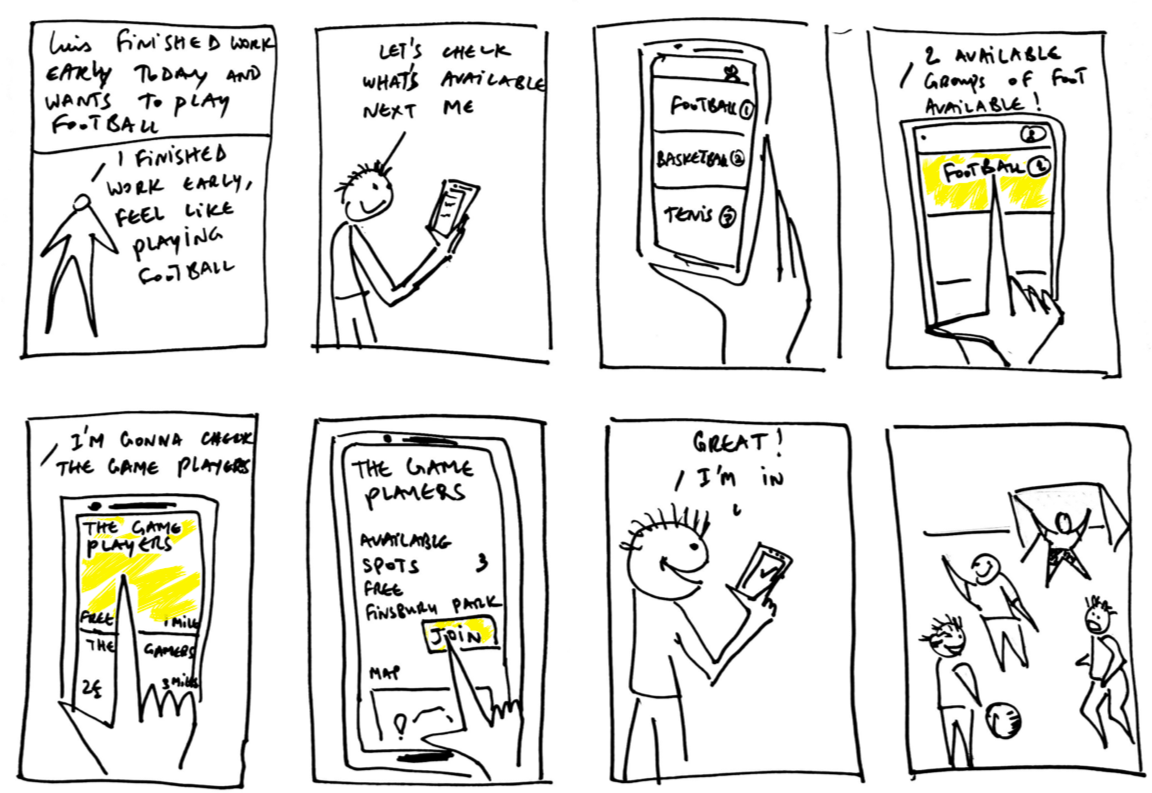 Luis FINISHED WORK
EARLY TODAY AND
WANTS TO PLAY
FOOTBALL
I FINISHED
WORK EARLY,
FEEL LIKE
PLAYING
FOOTBALL
LET'S CHECK
WHAT'S AVAILABLE
NEXT ME
FOOTBALL
BASKETBALL
TENIS
2 AVAILABLE
GROUPS OF FOOT
AVAILABLE!
FOOTBALL 2
I'M GONNA CHECK
THE GAME PLAYERS
THE GAME
PLAYERS
FREE 1 MILE
THE GAMERS
2£ 3 MILES
THE GAME
PLAYERS
AVAILABLE
SPOTS 3
FREE
FINSBURY PARK
JOIN
MAP
GREAT!
I'M IN